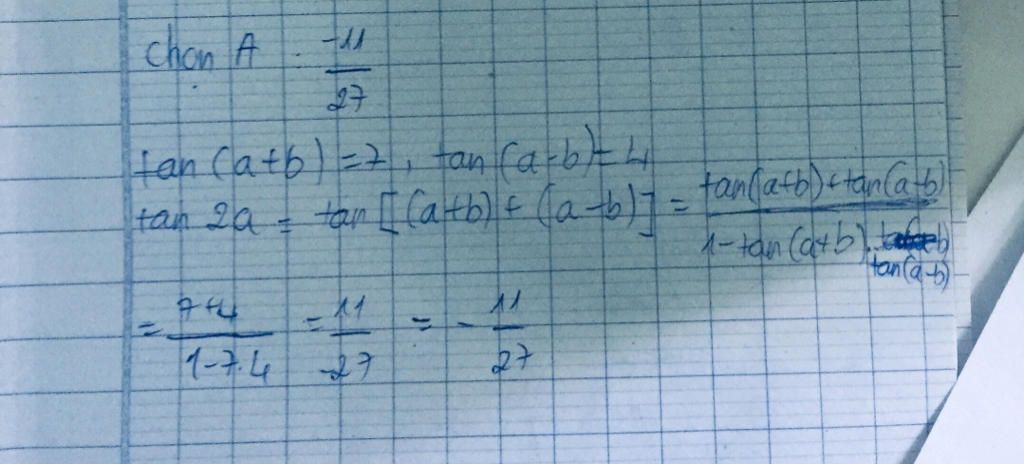 Chọn A : -11/27
tan (a+b) = 7, tan (a-b) = 4
tan 2a = tan [(a+b) + (a-b)] = tan(a+b) + tan(a-b) / 1 - tan(a+b) . tan(a-b)
= 7+4 / 1-7.4 = 11 / -27 = - 11/27